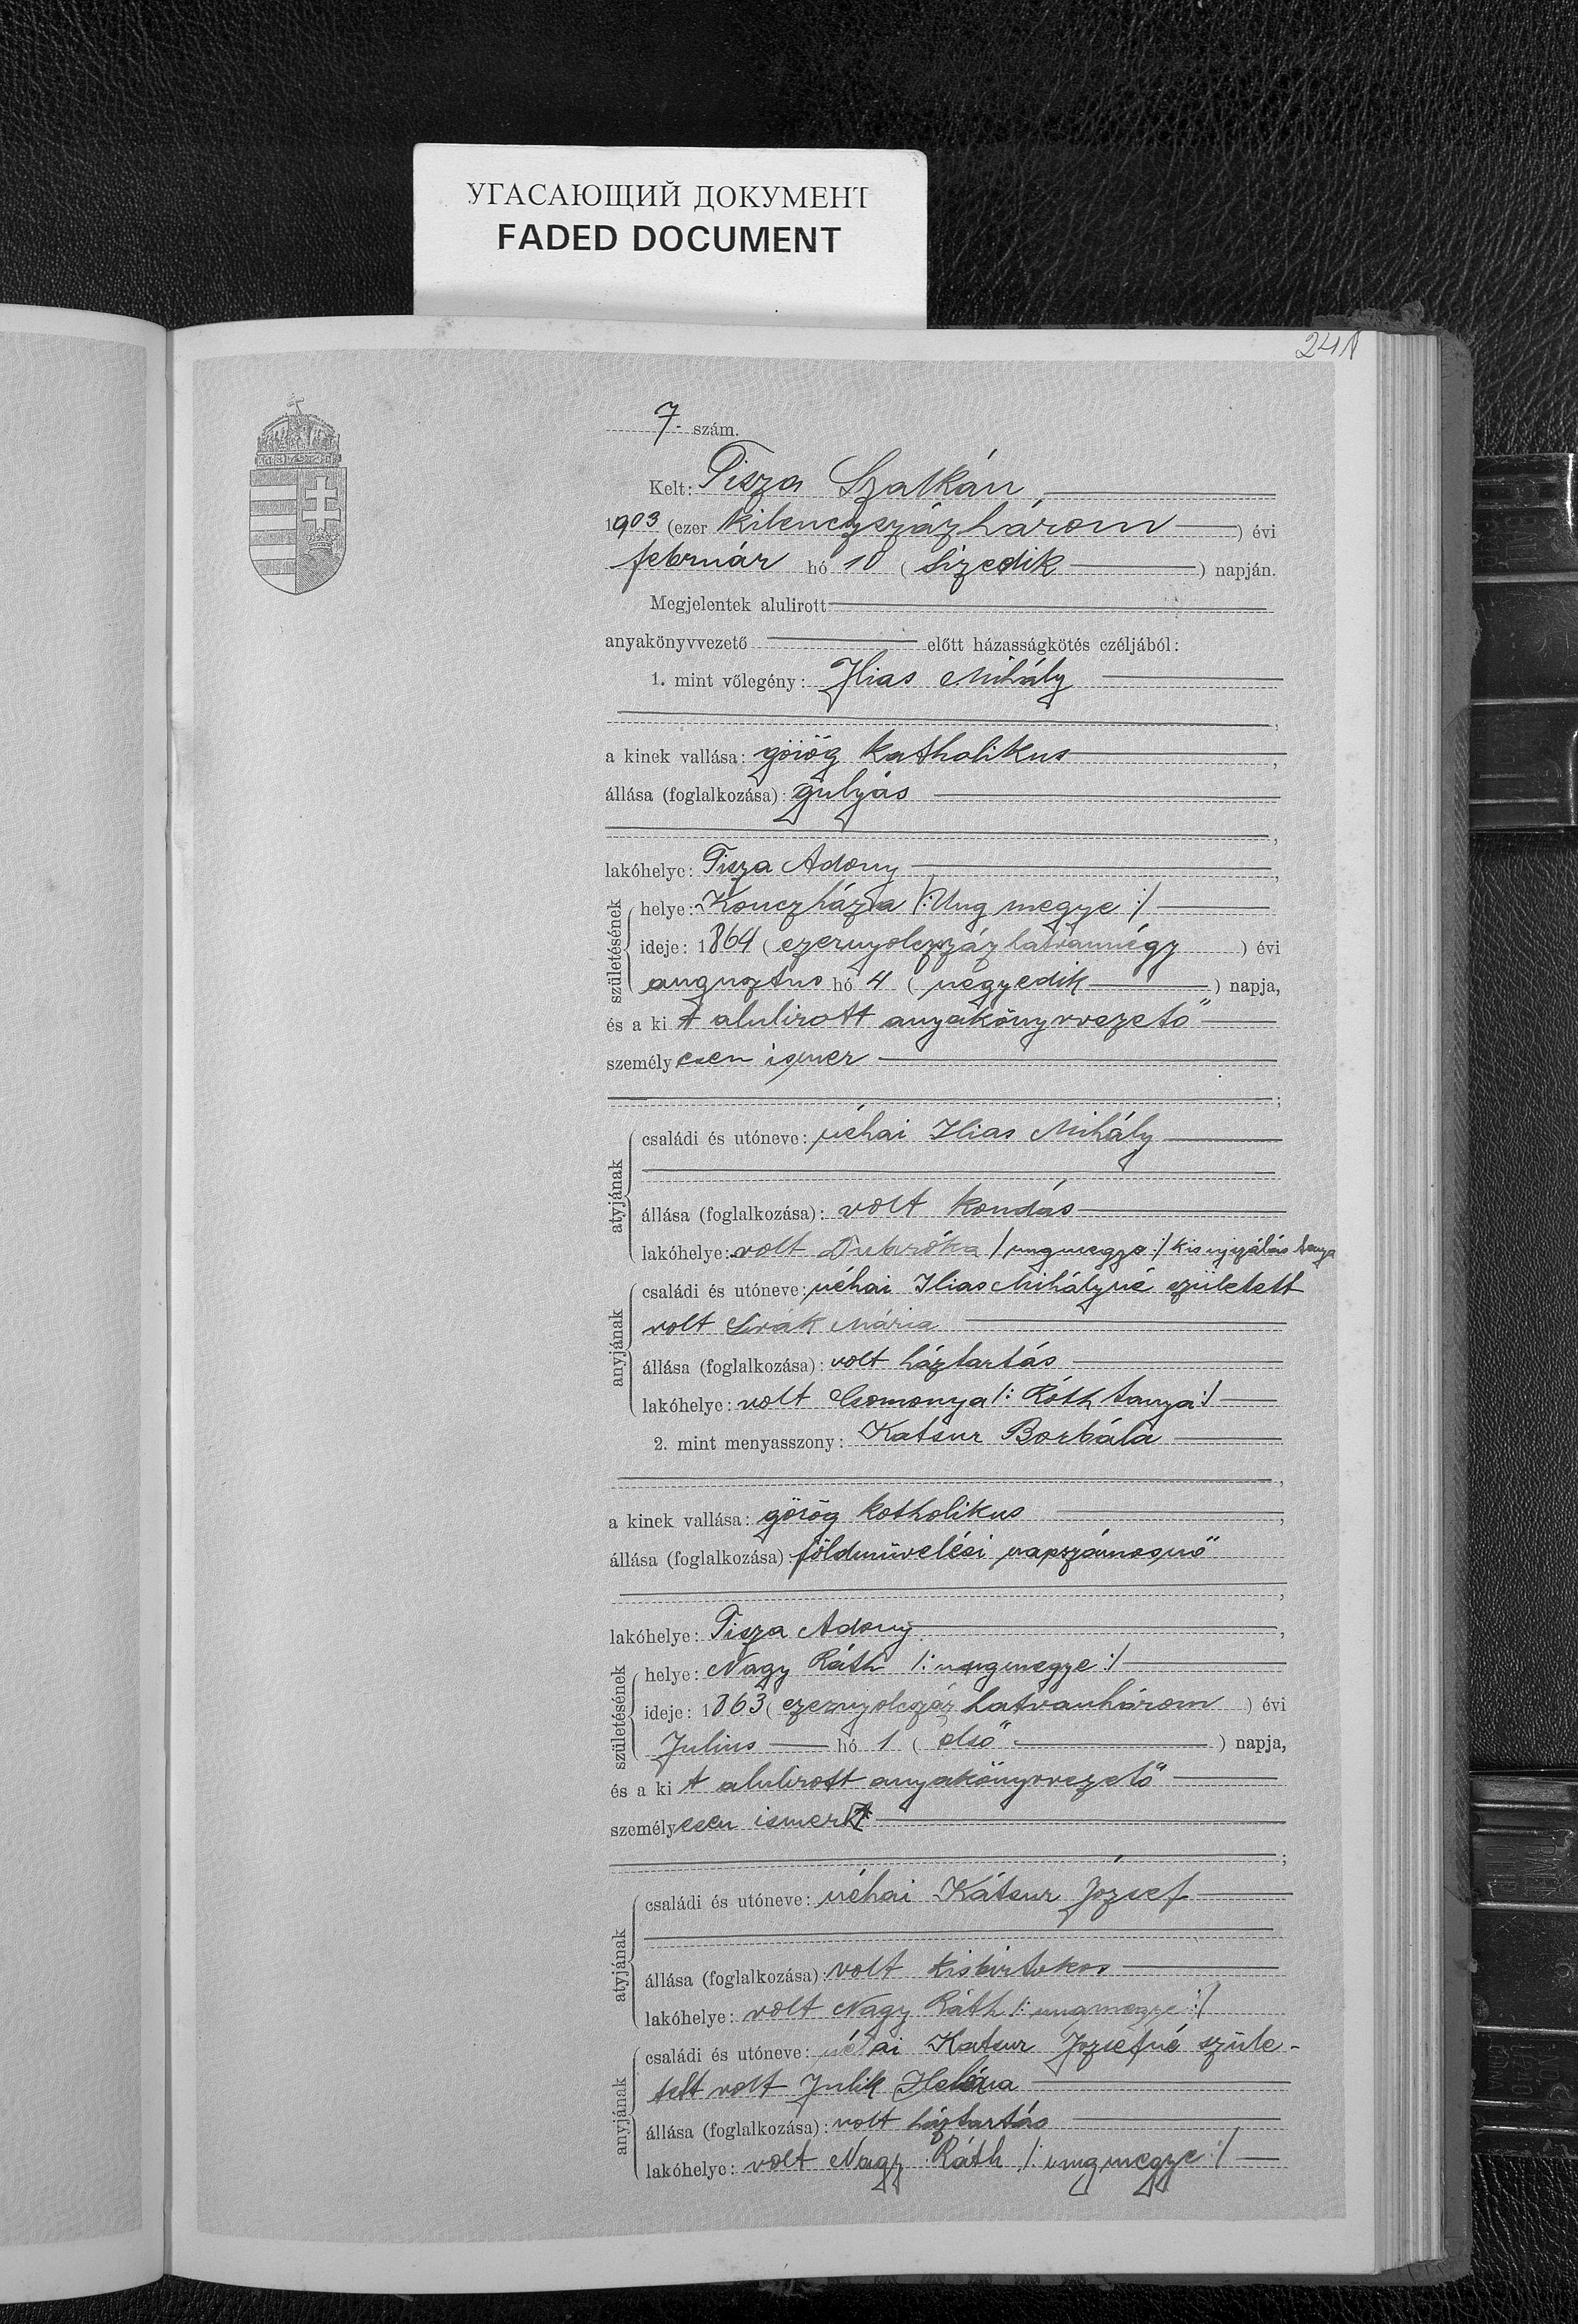 УГАСАЮЩИЙ ДОКУМЕНТ
FADED DOCUMENT
241
7. szám.
Kelt: Tisza Szalkán,
1903 (ezer kilenczszázhárom) évi
február hó 10 (tizedik) napján.
Megjelentek alulirott
anyakönyvvezető előtt házasságkötés czéljából:
1. mint vőlegény: Ilias Mihály
a kinek vallása: görög katholikus,
állása (foglalkozása): gulyás
lakóhelye: Tisza Adony,
születésének
helye: Konczháza /: Ung megye :/
ideje: 1864 (ezernyolczszázhatvannégy) évi
augusztus hó 4 (negyedik) napja,
és a ki t alulirott anyakönyvvezető
személyesen ismer
atyjának
családi és utóneve: néhai Ilias Mihály
állása (foglalkozása): volt kondás
lakóhelye: volt / ungmegye :/ tanya
anyjának
családi és utóneve: néhai Ilias Mihályné született
volt Sirák Mária
állása (foglalkozása): volt háztartás
lakóhelye: volt Csomonya /: Róth tanya :/
2. mint menyasszony: Katsur Borbála
a kinek vallása: görög katholikus,
állása (foglalkozása): földmüvelési napszámosnő
lakóhelye: Tisza Adony,
születésének
helye: Nagy Ráth /: ungmegye :/
ideje: 1863 (ezernyolczáz hatvanhárom) évi
Julius hó 1 (első) napja,
és a ki t alulirott anyakönyvvezető
személyesen ismer
atyjának
családi és utóneve: néhai Kátsur József
állása (foglalkozása): volt kisbirtokos
lakóhelye: volt Nagy Ráth /: ungmegye :/
anyjának
családi és utóneve: néhai Katsur Jozsefné szüle-
tett volt Julik Heléna
állása (foglalkozása): volt háztartás
lakóhelye: volt Nagy Ráth /: ungmegye :/